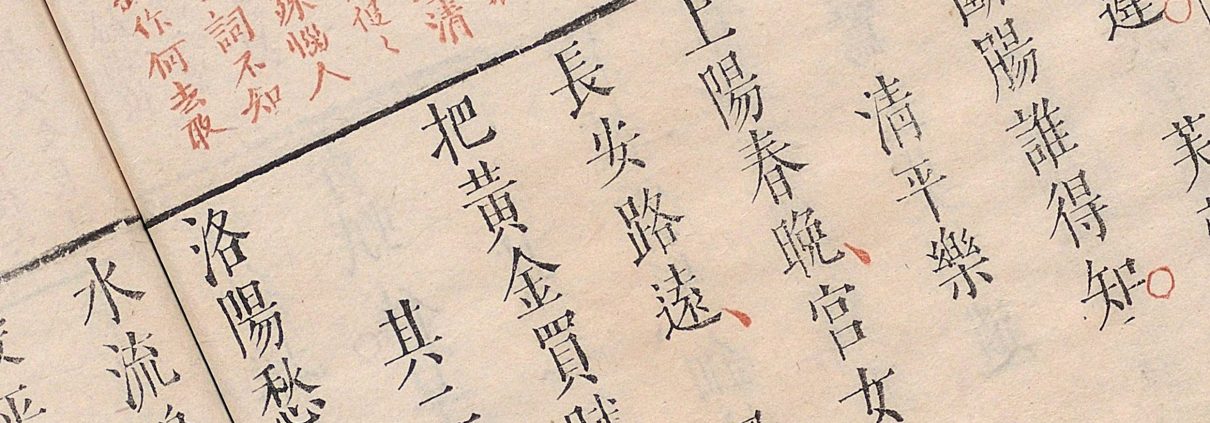 芙
腸誰得知
清平樂
上陽春晚宮女
長安路遠
把黃金買賦
其二
洛陽愁
水流
清
殊惱人
詞不知
作何去取